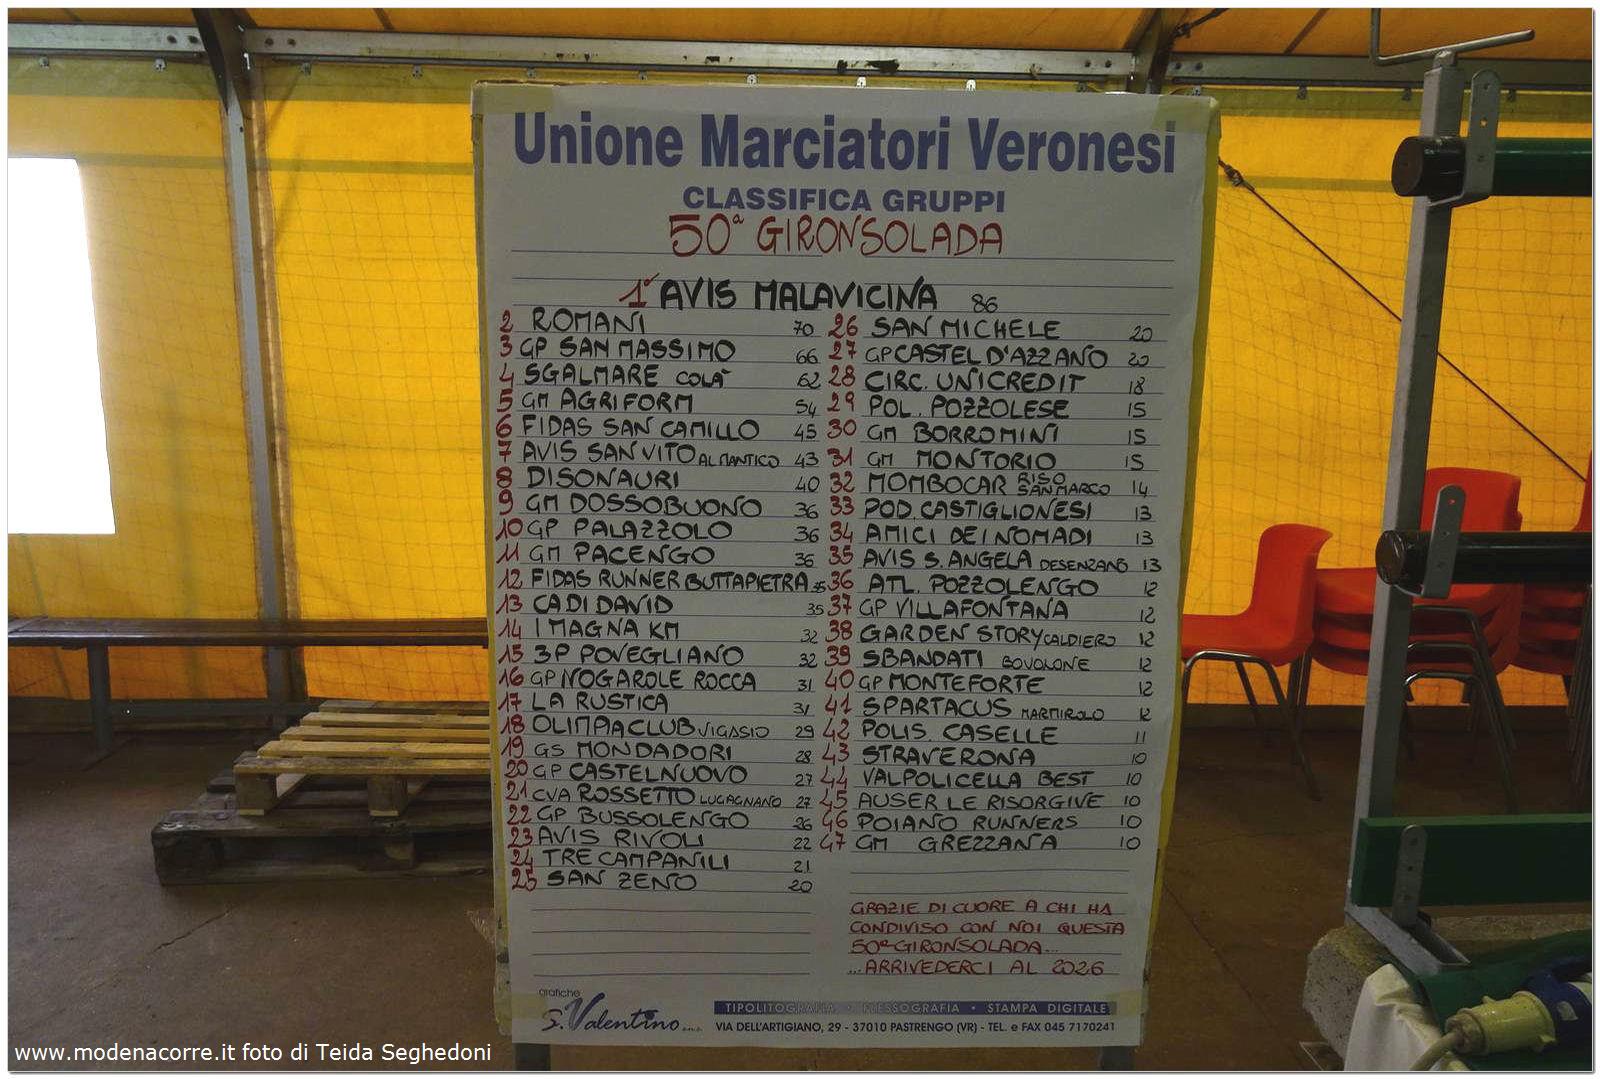 Unione Marciatori Veronesi
CLASSIFICA GRUPPI
50ª GIRONSOLADA
1° AVIS MALAVICINA 86
2 ROMANI 70
3 GP SAN MASSIMO 66
4 SGALMARE COLA' 62
5 GM AGRIFORM 54
6 FIDAS SAN CAMILLO 45
7 AVIS SAN VITO AL MANTICO 43
8 DISONAURI 40
9 GM DOSSOBUONO 36
10 GP PALAZZOLO 36
11 GM PACENGO 36
12 FIDAS RUNNER BUTTAPIETRA 35
13 CADIDAVID 35
14 I MAGNA KM 32
15 3P POVEGLIANO 32
16 GP NOGAROLE ROCCA 31
17 LA RUSTICA 31
18 OLIMPIACLUB VIGASIO 29
19 GS MONDADORI 28
20 GP CASTELNUOVO 27
21 CVA ROSSETTO LUGAGNANO 27
22 GP BUSSOLENGO 26
23 AVIS RIVOLI 22
24 TRE CAMPANILI 21
25 SAN ZENO 20
26 SAN MICHELE 20
27 GP CASTEL D'AZZANO 20
28 CIRC. UNICREDIT 18
29 POL. POZZOLESE 15
30 GM BORROMINI 15
31 GM MONTORIO 15
32 MOMBOCAR RISO SAN MARCO 14
33 POD. CASTIGLIONESI 13
34 AMICI DEI NOMADI 13
35 AVIS S. ANGELA DESENZANO 13
36 ATL. POZZOLENGO 12
37 GP VILLAFONTANA 12
38 GARDEN STORY CALDIERO 12
39 SBANDATI BOVOLONE 12
40 GP MONTEFORTE 12
41 SPARTACUS MARMIROLO 12
42 POLIS. CASELLE 11
43 STRAVERONA 10
44 VALPOLICELLA BEST 10
45 AUSER LE RISORGIVE 10
46 POIANO RUNNERS 10
47 GM GREZZANA 10
GRAZIE DI CUORE A CHI HA
CONDIVISO CON NOI QUESTA
50ª GIRONSOLADA...
...ARRIVEDERCI AL 2026
grafiche
S. Valentino s.n.c.
TIPOLITOGRAFIA • FLESSOGRAFIA • STAMPA DIGITALE
VIA DELL'ARTIGIANO, 29 - 37010 PASTRENGO (VR) - TEL. e FAX 045 7170241
www.modenacorre.it foto di Teida Seghedoni